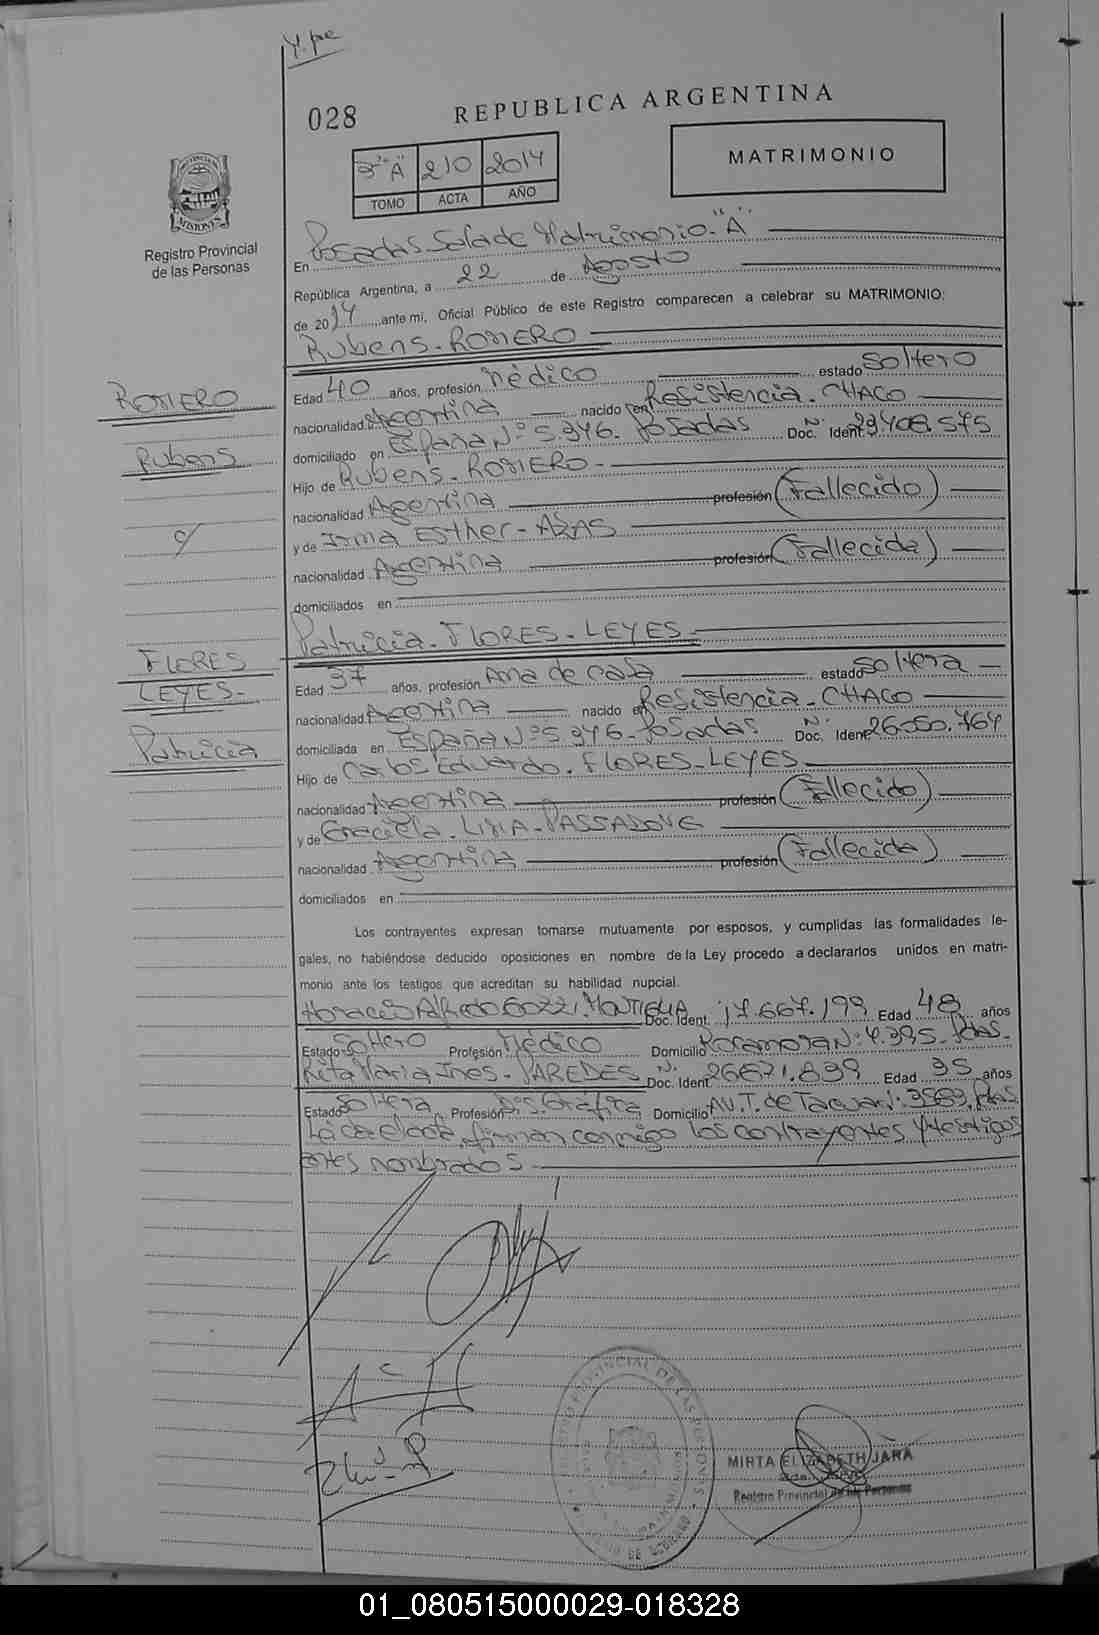 028
REPUBLICA ARGENTINA
3º "A" 210 2014
TOMO ACTA AÑO
MATRIMONIO
Registro Provincial
de las Personas
En Posadas Sala de Matrimonio "A"
República Argentina, a 22 de Agosto
de 2014, ante mi, Oficial Público de este Registro comparecen a celebrar su MATRIMONIO:
Rubens - ROMERO
ROMERO
Rubens
c/
Edad 40 años, profesión Médico estado Soltero
nacionalidad Argentina nacido en Resistencia - CHACO
domiciliado en España Nº 5.946 - Posadas Doc. Ident. Nº 23.408.575
Hijo de Rubens - ROMERO -
nacionalidad Argentina profesión (Fallecido)
y de Irma Esther -
nacionalidad Argentina profesión (Fallecida)
domiciliados en
Patricia - FLORES - LEYES -
FLORES
LEYES -
Patricia
Edad 37 años, profesión Ama de casa estado Soltera
nacionalidad Argentina nacido en Resistencia - CHACO
domiciliada en España Nº 5.946 - Posadas Doc. Ident. Nº 26.050.764
Hijo de Carlos Eduardo - FLORES - LEYES
nacionalidad Argentina profesión (Fallecido)
y de Graciela -
nacionalidad Argentina profesión (Fallecida)
domiciliados en
Los contrayentes expresan tomarse mutuamente por esposos, y cumplidas las formalidades le-
gales, no habiéndose deducido oposiciones en nombre de la Ley procedo a declararlos unidos en matri-
monio ante los testigos que acreditan su habilidad nupcial.
Horacio Alfredo Doc. Ident. 17.667.199 Edad 48 años
Estado Soltero Profesión Médico Domicilio Rocamora Nº 4.395 - Pdas -
Rita Maria Ines - PAREDES Doc. Ident. Nº 26.671.839 Edad 35 años
Estado Soltera Profesión Ds. Gráfica Domicilio AV. T. de Tacuari: 3583, Pdas
Leída el acta, firman conmigo los contrayentes y testigos
antes nombrados
MIRTA ELIZABETH JARA
Registro Provincial de las Personas
01_080515000029-018328